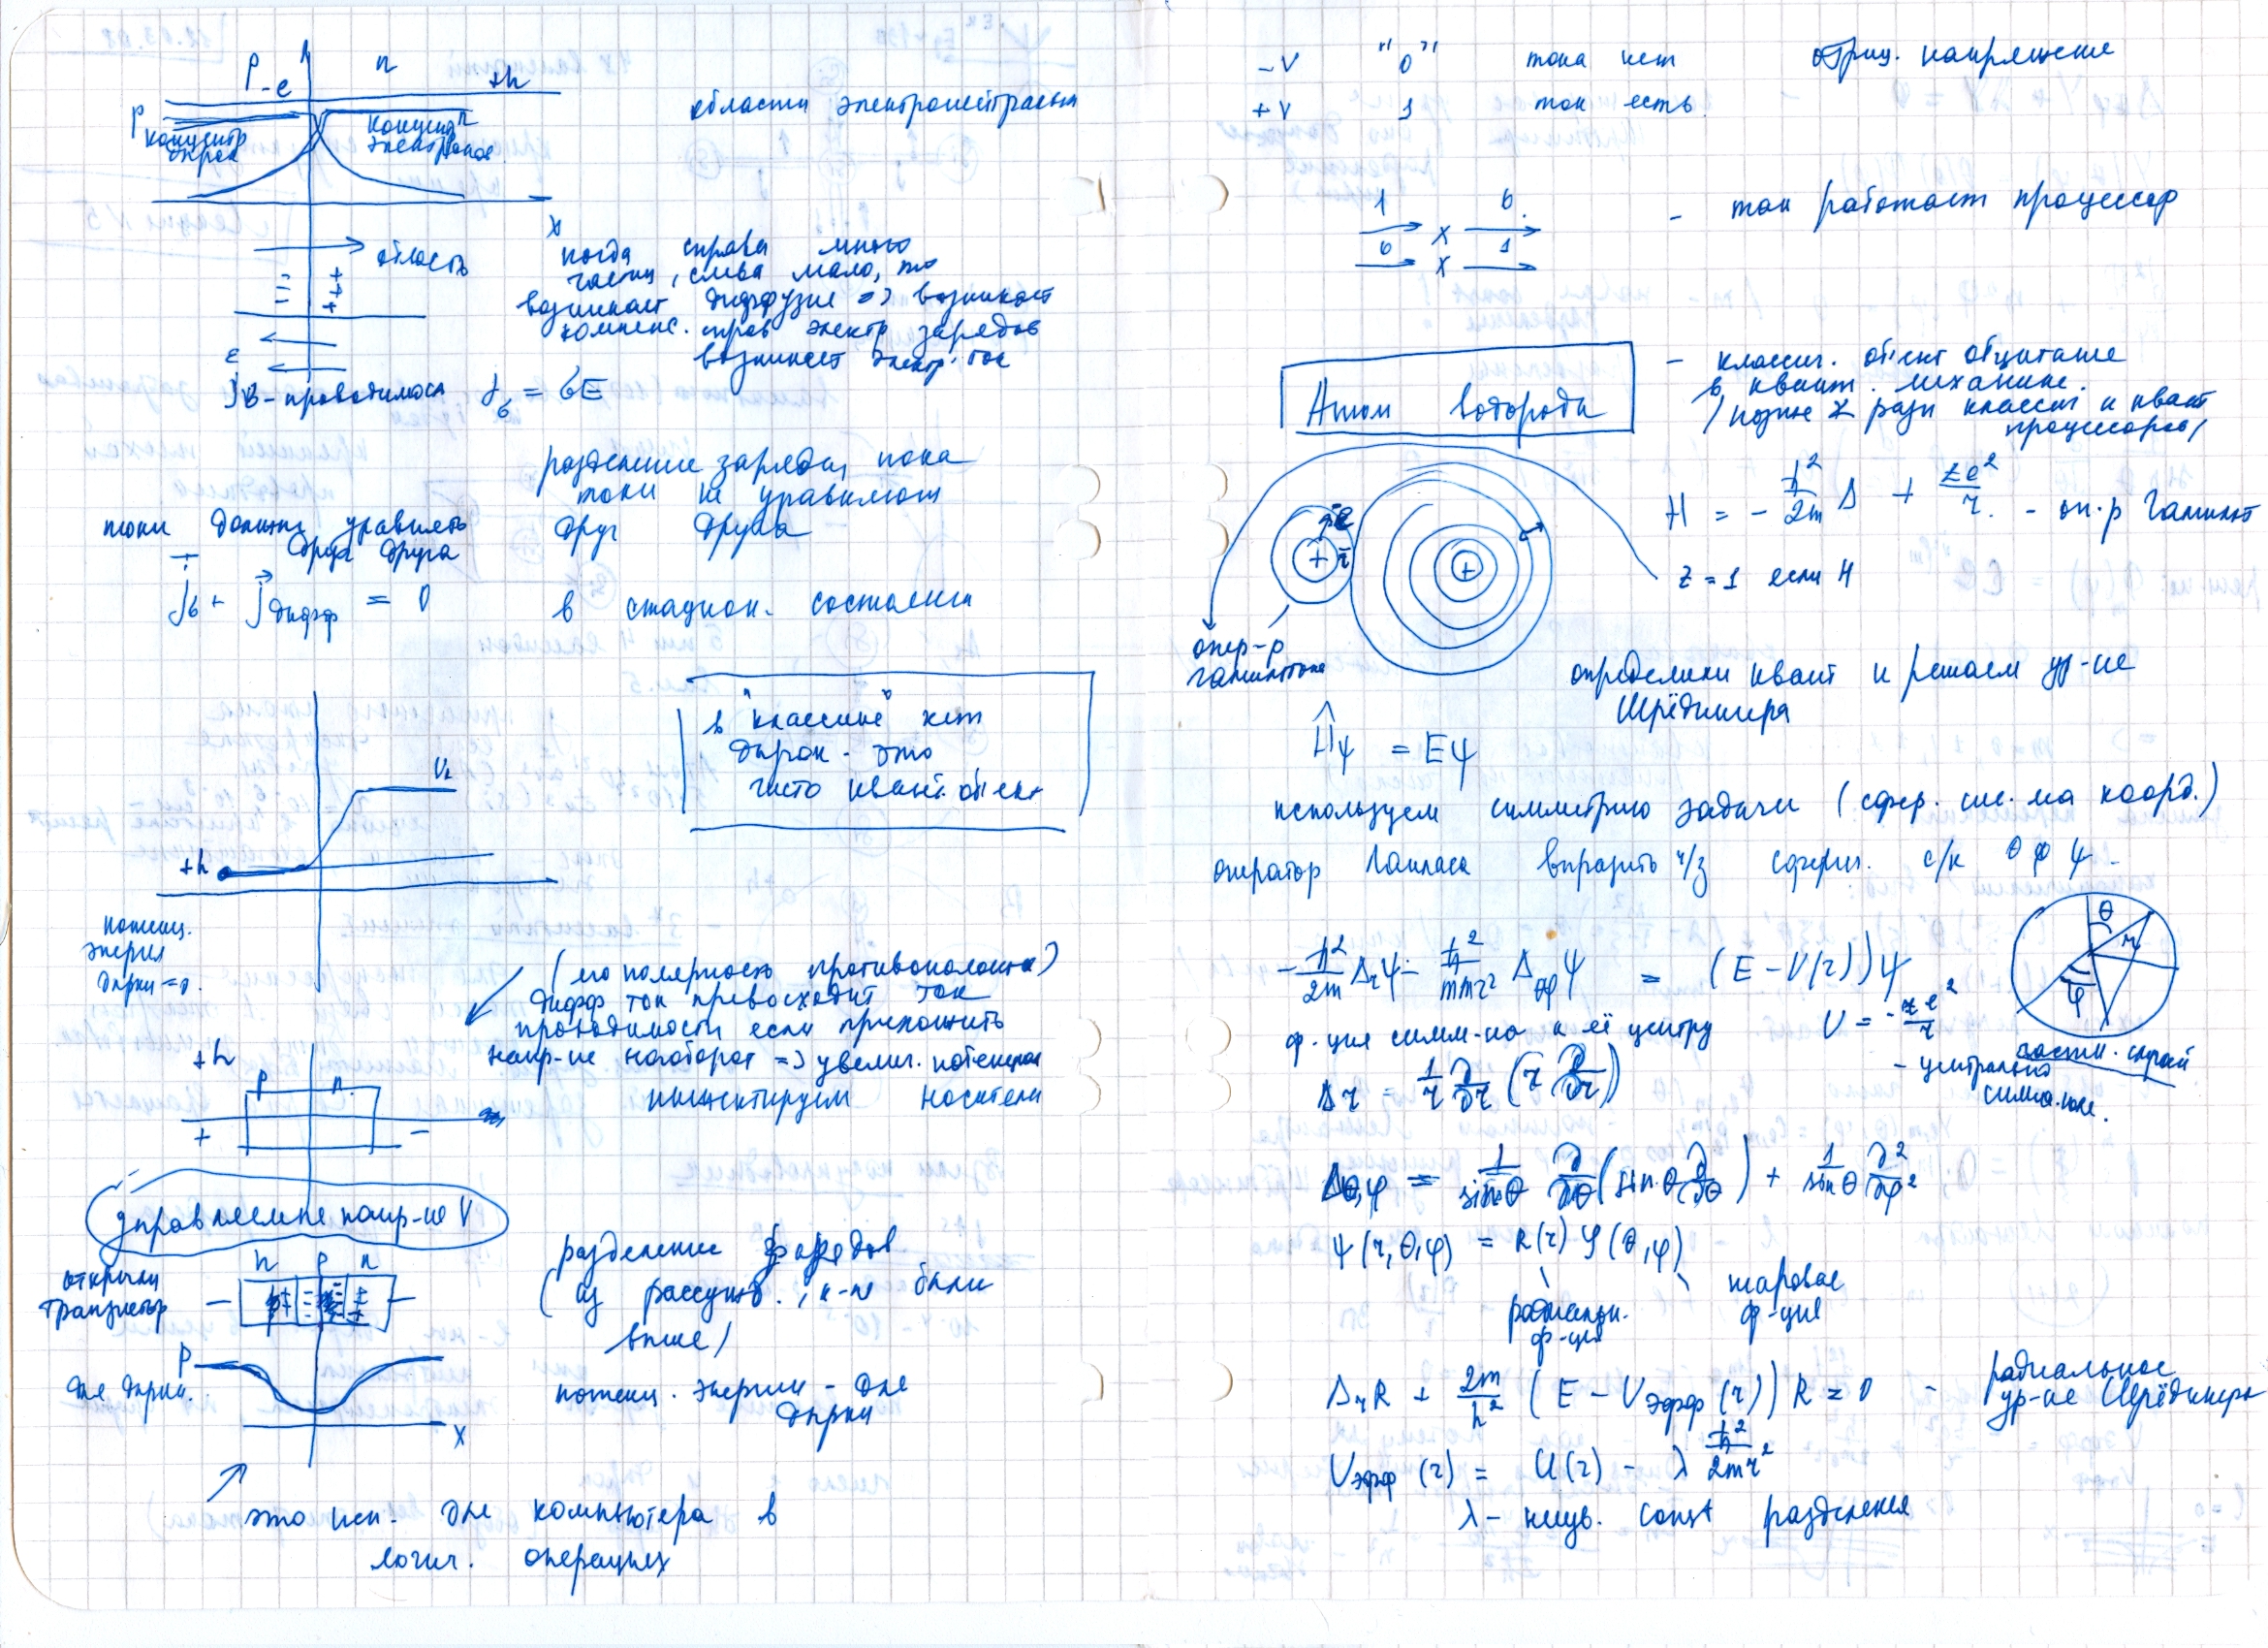 p n
-e +h
p
концентр
дырок
концентр n
электронов
x
области электронейтральн
область
когда справа много
частиц, слева мало, то
возникает диффузия => возникает
компенс. справ электр зарядов
возникает электр. ток
ε
j б - проводимося j_б = бE
разделение заряда, пока
токи не уравняют
друг друга
токи должны уравнять
друг друга
j_б + j_дифф = 0 в стацион. состоянии
в "классике" нет
дырок - это
чисто квант. объект
+h
потенц.
энергия
дырки = 0.
(его полярность противоположна)
дифф ток превосходит ток
проводимости если приложить
напр-ие наоборот => увелич. потенциал
инжектируем носители
+h
p n.
+ -
управляемые напр-ие V
открыли
транзистор
n p n
разделение зарядов
(из рассужд., к-е были
выше)
p
для дырки..
x
потенц. энергии - для
дырки
это исп. для компьютера в
логич. операциях
-V "0" тока нет отриц. напряжение
+V 1 ток есть.
1 0.
0 x 1
x
- так работает процессор
Атом водорода
- классич. объект обитание
в квант. механике.
/позже 2 рази классич и квант
процессоры/
H = - ħ²/2m Δ + ze²/r. - оп-р Гамильт
z = 1 если H
-e
+ r
+
опер-р
гамильтона
определили квант и решаем ур-ие
Шрёдингера
Ĥψ = Eψ
используем симметрию задачи (сфер. сис-ма коорд.)
оператор Лапласа выразить ч/з сферич. с/к θ φ ψ.
- ħ²/2m Δ_r ψ - ħ²/2mr² Δ_θφ ψ = (E - V(r))ψ
θ
r
φ
ф-ция симм-на к её центру V = - ze²/r
- центрально
симм. поле.
частн. случай
Δr = 1/r ∂/∂r (r ∂/∂r)
Δ_θ,φ = 1/sinθ ∂/∂θ (sin θ ∂/∂θ) + 1/sinθ ∂²/∂φ²
ψ(r,θ,φ) = R(r) Y(θ,φ)
радиальн.
ф-ция
шаровая
ф-ция
Δ_r R + 2m/ħ² (E - V_эфф (r)) R = 0 - радиальное
ур-ие Шрёдингера
V_эфф (r) = U(r) - λ ħ²/2mr²
λ - неизв. const разделения